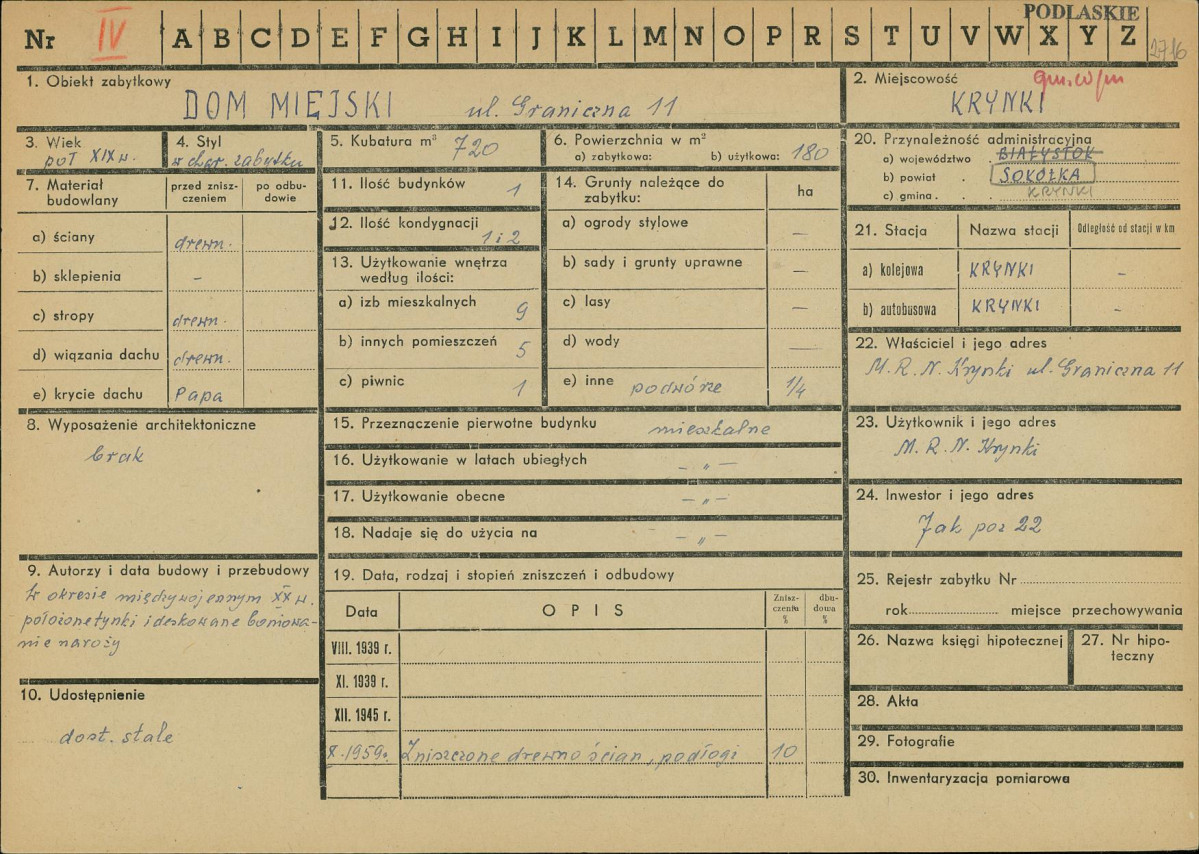 PODLASKIE
Nr IV A B C D E F G H I J K L M N O P R S T U V W X Y Z 2716
1. Obiekt zabytkowy
DOM MIEJSKI ul. Graniczna 11
2. Miejscowość
gm. w/m
KRYNKI
3. Wiek
poł XIX w.
4. Styl
w char. zabytku
5. Kubatura m³ 720
6. Powierzchnia w m²
a) zabytkowa: b) użytkowa: 180
20. Przynależność administracyjna
a) województwo BIAŁYSTOK
b) powiat SOKÓŁKA
c) gmina KRYNKI
7. Materiał budowlany
przed zniszczeniem
po odbudowie
a) ściany drewn.
b) sklepienia –
c) stropy drewn.
d) wiązania dachu drewn.
e) krycie dachu Papa
11. Ilość budynków 1
12. Ilość kondygnacji 1 i 2
13. Użytkowanie wnętrza
według ilości:
a) izb mieszkalnych 9
b) innych pomieszczeń 5
c) piwnic 1
14. Grunty należące do
zabytku: ha
a) ogrody stylowe –
b) sady i grunty uprawne –
c) lasy –
d) wody –
e) inne podwórze 1/4
21. Stacja Nazwa stacji Odległość od stacji w km
a) kolejowa KRYNKI –
b) autobusowa KRYNKI –
22. Właściciel i jego adres
M. R. N. Krynki ul. Graniczna 11
8. Wyposażenie architektoniczne
brak
15. Przeznaczenie pierwotne budynku mieszkalne
16. Użytkowanie w latach ubiegłych – „ –
17. Użytkowanie obecne – „ –
18. Nadaje się do użycia na – „ –
23. Użytkownik i jego adres
M. R. N. Krynki
24. Inwestor i jego adres
Jak poz 22
9. Autorzy i data budowy i przebudowy
W okresie międzywojennym XX w.
położone tynki i deskowane boniowa-
nie naroży
10. Udostępnienie
dost. stale
19. Data, rodzaj i stopień zniszczeń i odbudowy
Data OPIS Zniszczenia % dbudowa %
VIII. 1939 r.
XI. 1939 r.
XII. 1945 r.
X. 1959 r. Zniszczone drewno ścian, podłogi 10
25. Rejestr zabytku Nr
rok miejsce przechowywania
26. Nazwa księgi hipotecznej
27. Nr hipo-
teczny
28. Akta
29. Fotografie
30. Inwentaryzacja pomiarowa